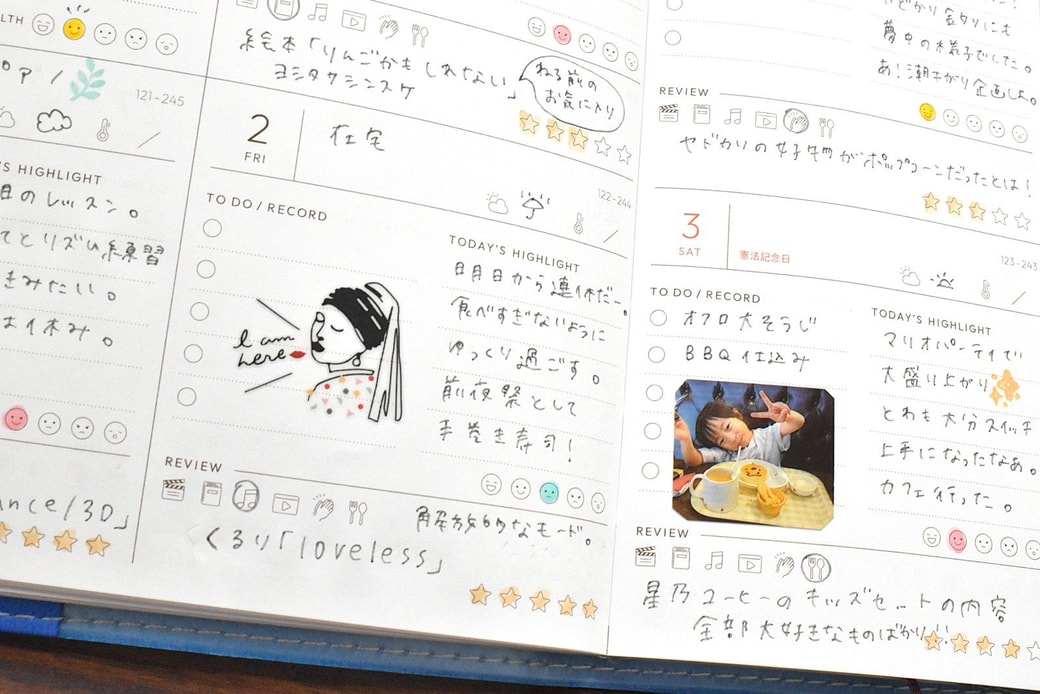 LTH
121-245
'S HIGHLIGHT
日のレッスン。
てとリズム練習
きみたい。
ance/30」
絵本「りんごかもしれない」
ヨシタケシンスケ
ねる前の
お気に入り
2
FRI
在宅
122-244
TO DO / RECORD
I am
here
TODAY'S HIGHLIGHT
明日から連休だー。
食べすぎないように
ゆっくり過ごす。
前夜祭として
手巻き寿司!
REVIEW
解放的なモード。
くるり「loveless」
夢中の様子でした。
あ!潮干がり企画しよ。
REVIEW
ヤドカリの好物がポップコーンだったとは!
3
SAT
憲法記念日
123-243
TO DO / RECORD
オフロ大そうじ
BBQ仕込み
TODAY'S HIGHLIGHT
マリオパーティで
大盛り上がり
とわも大分スイッチ
上手になったなあ。
カフェ行った。
REVIEW
星乃コーヒーのキッズセットの内容
全部大好きなものばかり!